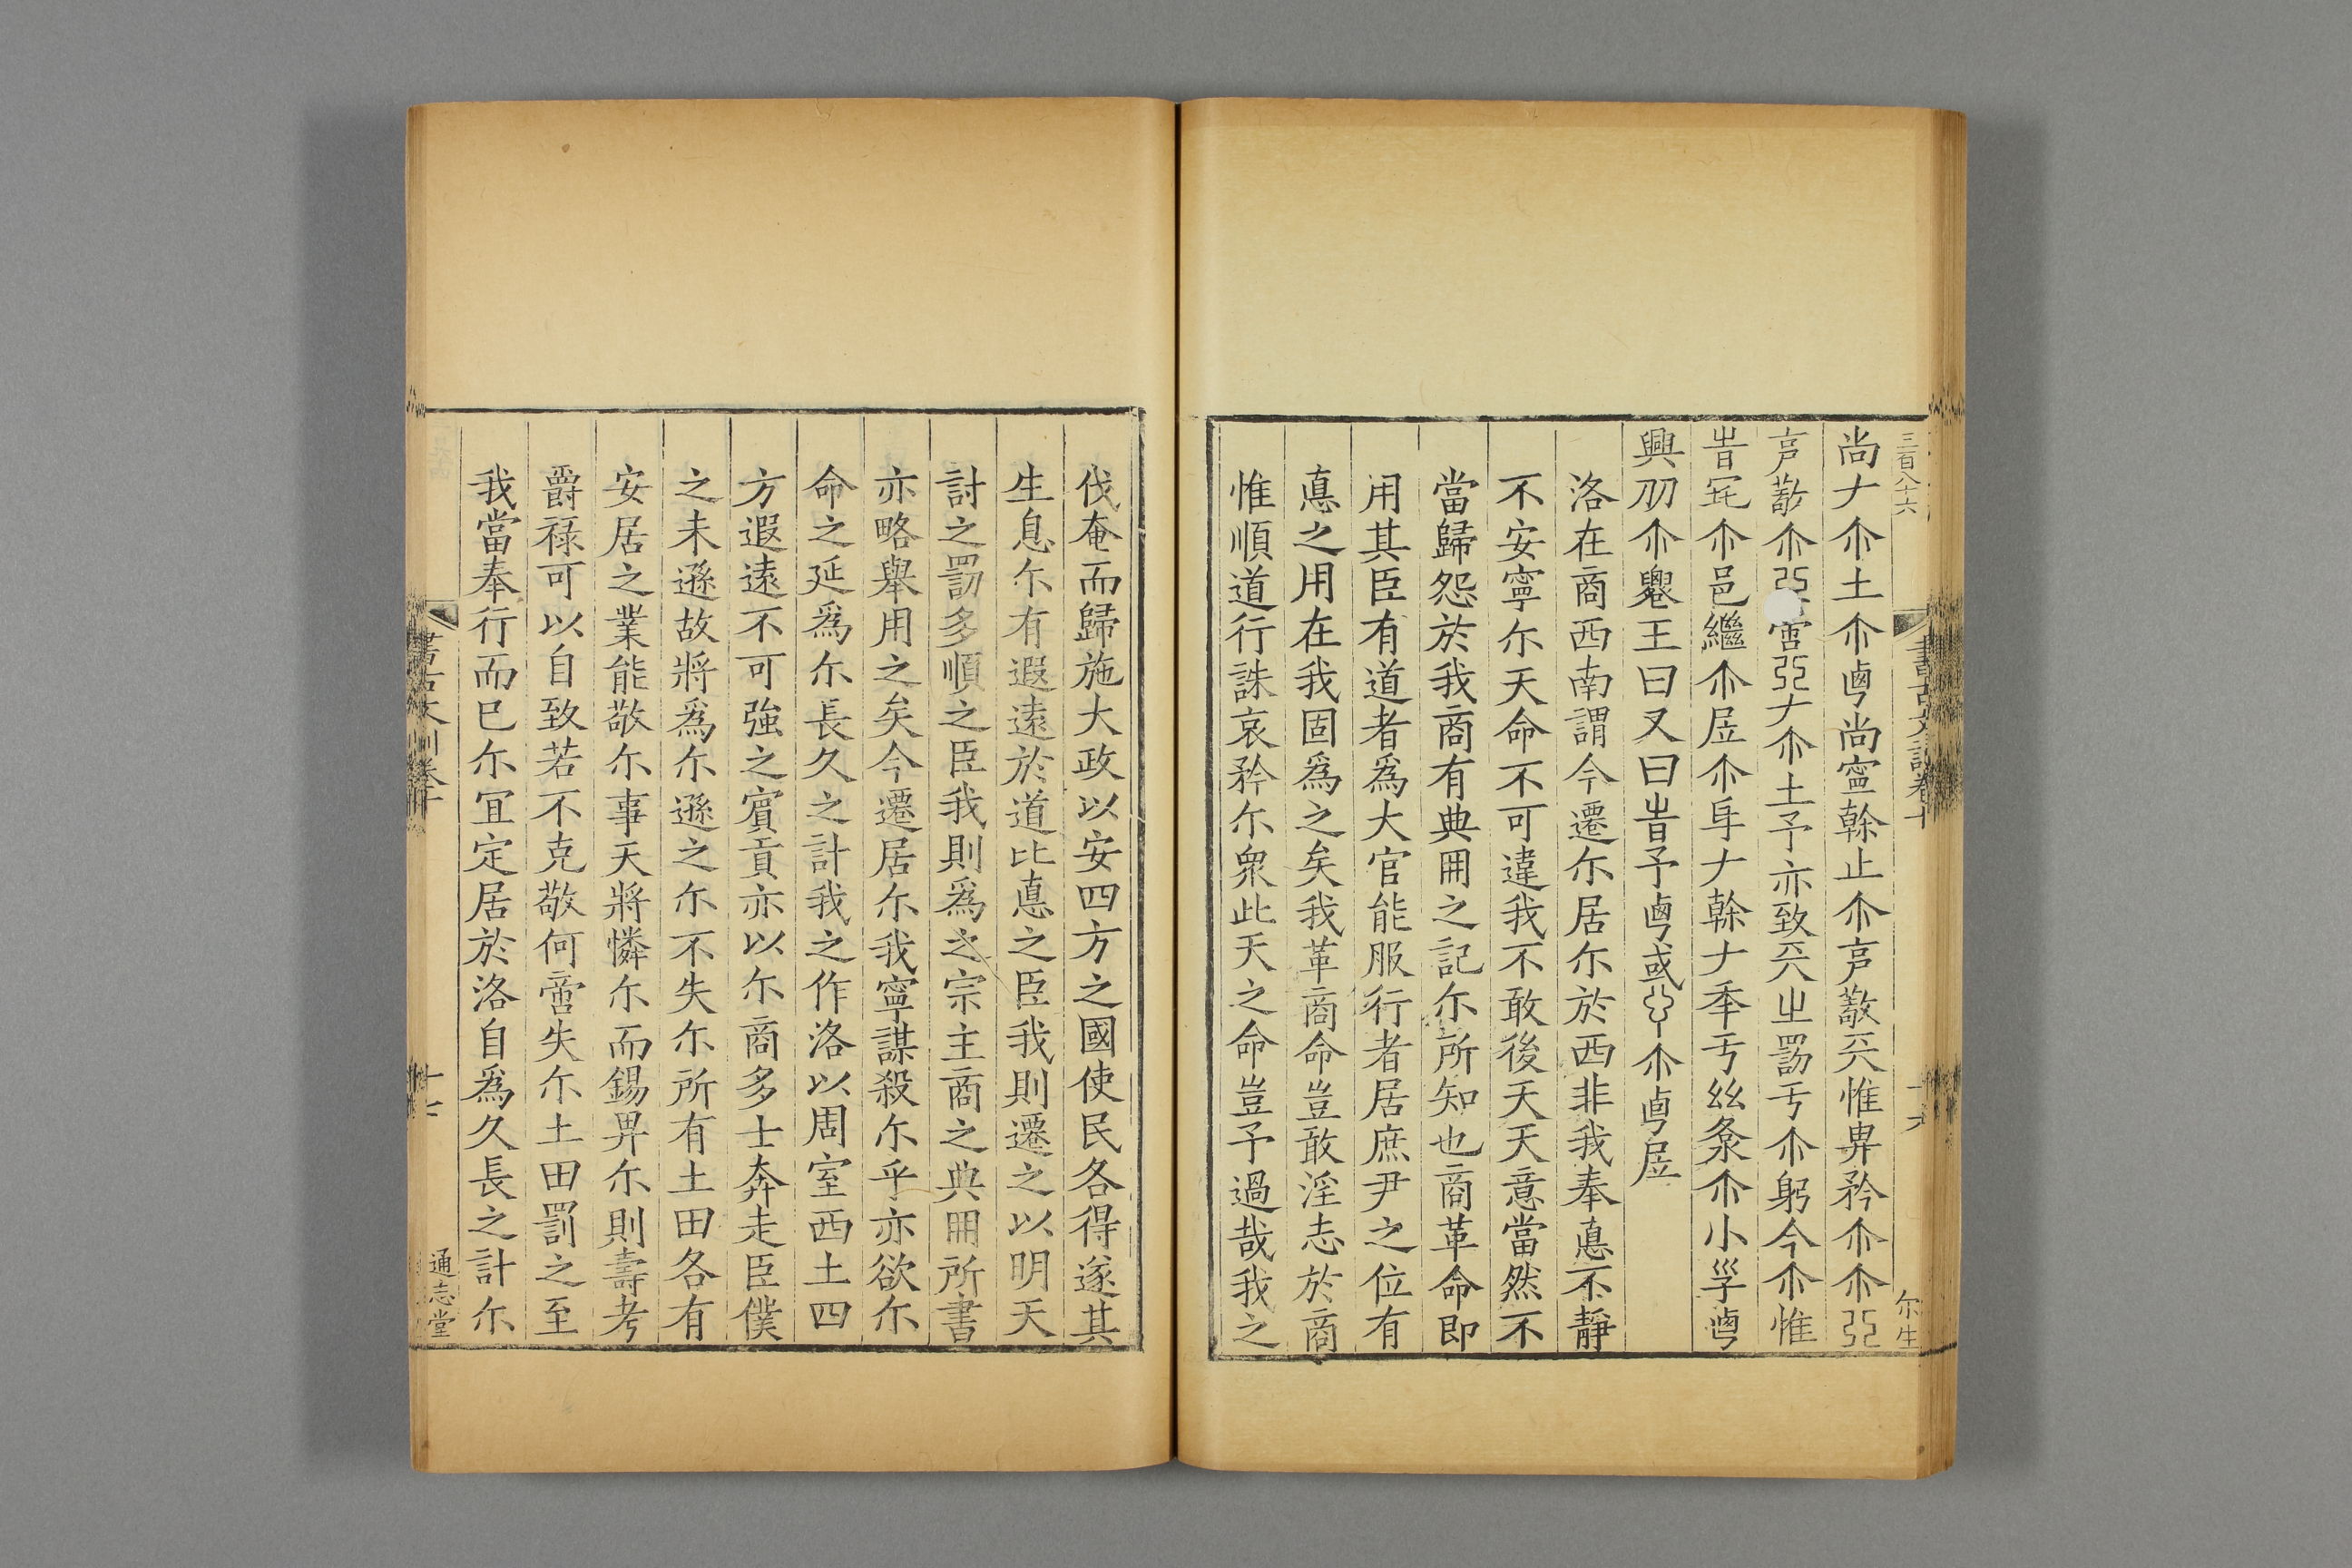 三百八十六
書古文訓卷十
十六
尓生
尚𠂇尒土尒𠧟尚寍榦止尒亯𢿢兲惟𢌿矜尒尒弫
亯𢿢尒弫啻弫𠂇尒土予亦致兲㞢罰亏尒躬今尒惟
旹宅尒邑繼尒凥尒𠂤𠂇榦𠂇秊亏丝条尒小孚𠧟
興刅尒䙴王曰又曰旹予𠧟或尒𠧟凥
洛在商西南謂今遷尓居尓於西非我奉悳不靜
不安寧尓天命不可違我不敢後天天意當然不
當歸怨於我商有典𠕋之記尓所知也商革命即
用其臣有道者為大官能服行者居庶尹之位有
悳之用在我固爲之矣我革商命豈敢淫志於商
惟順道行誅哀矜尓衆此天之命豈予過哉我之
伐奄而歸施大政以安四方之國使民各得遂其
生息尓有遐遠於道比悳之臣我則遷之以明天
討之罰多順之臣我則爲之宗主商之典𠕋所書
亦略舉用之矣今遷居尓我寧謀殺尓乎亦欲尓
命之延爲尓長久之計我之作洛以周室西土四
方遐遠不可強之賓貢亦以尓商多士奔走臣僕
之未遜故將爲尓遜之尓不失尓所有土田各有
安居之業能敬尓事天將憐尓而錫畀尓則壽考
爵祿可以自致若不克敬何啻失尓土田罰之至
我當奉行而巳尓宜定居於洛自爲久長之計尓
書古文訓卷十
十七
通志堂